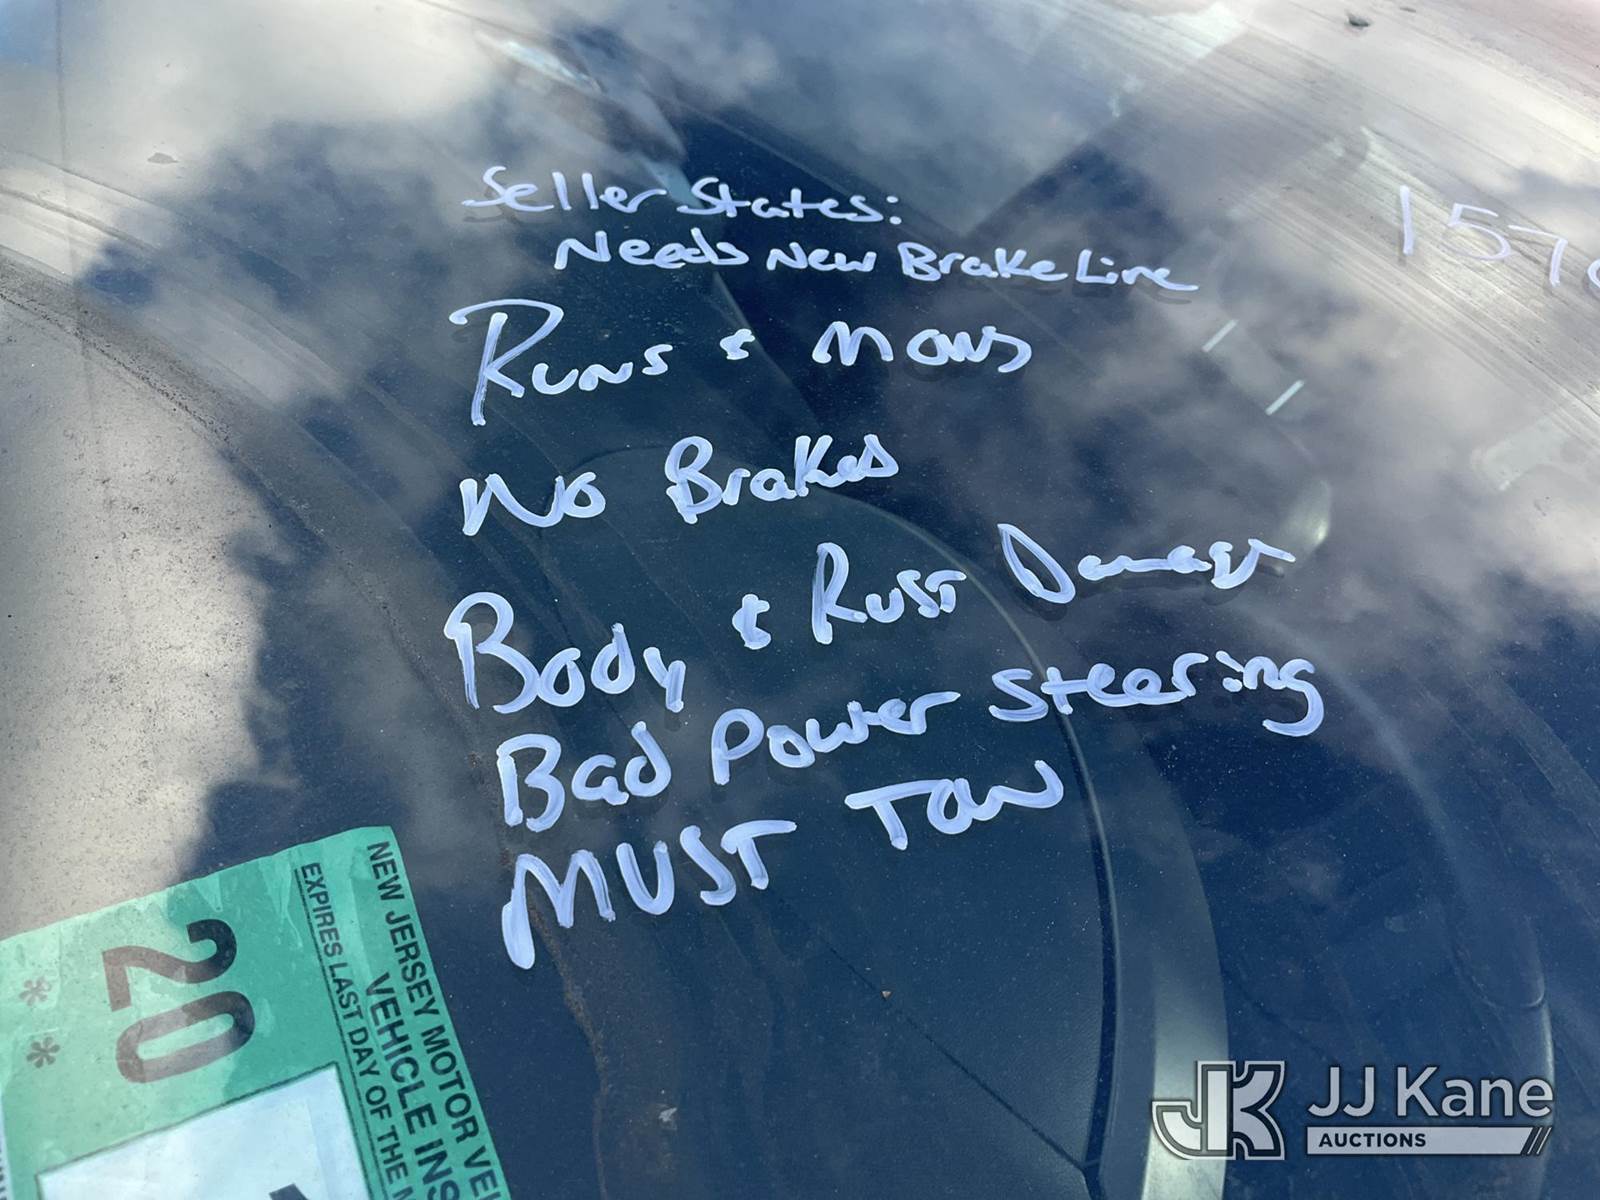 Seller States:
Needs New Brake Line
Runs & Moves
No Brakes
Body & Rust Damage
Bad Power Steering
MUST TOW
157
NEW JERSEY MOTOR VEH
VEHICLE INS
EXPIRES LAST DAY OF THE M
20
**
JJ Kane
AUCTIONS